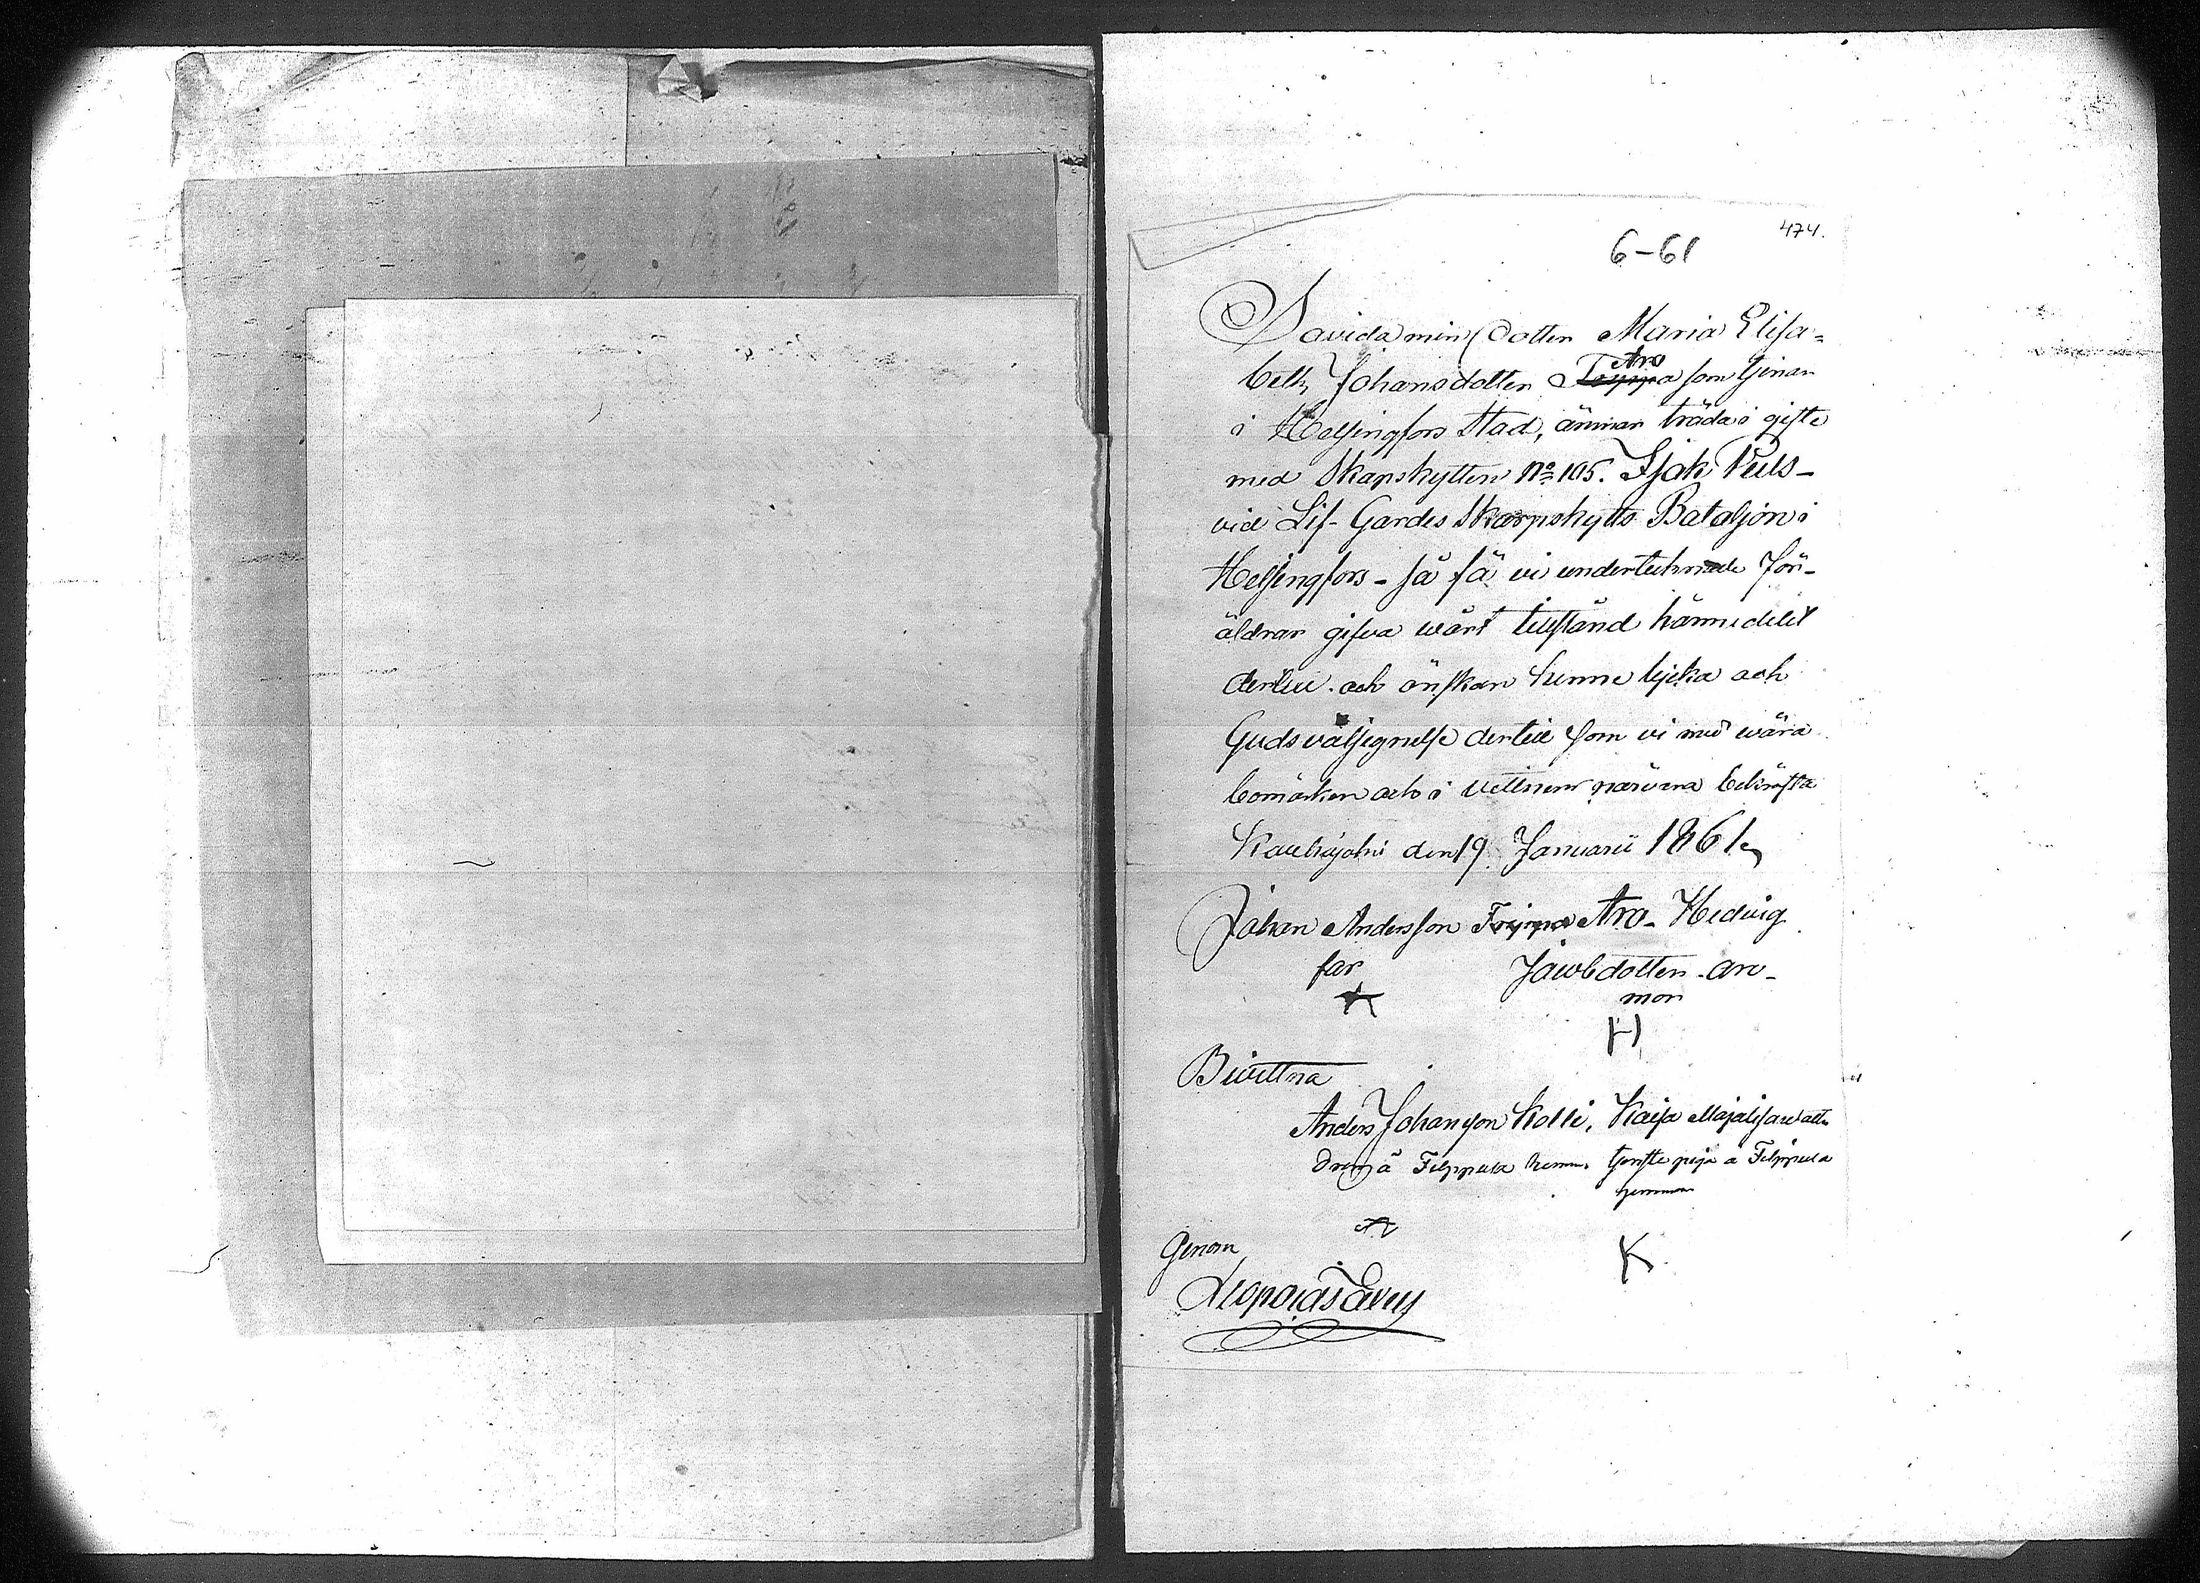 474.
6-61
Savida min Dotter Maria Elisa=
beth Johansdotter Aro som tjenar
i Helsingfors Stad, ämnar träda i gifte
med Skarpskytten No 105. Isak Vils-
vid Lif-Gardes Skarpskytts Bataljon i
Helsingfors - så få vi undertecknade För-
äldrar gifva wårt tillstånd härmedelst
dertill. och önskar henne lycka och
Guds välsignelse dertill som vi med wåra
bomärken och i vittners närvara bekräfta
den 19 Januarii 1861.
Johan Andersson Aro - Hedvig
far Jacobsdotter - aro -
mor
H
Bevittna
Anders Johansson Kolli, Kaisa
Dreng å Filppula hemm. tjenste piga å Filppula
hemman
K
Genom